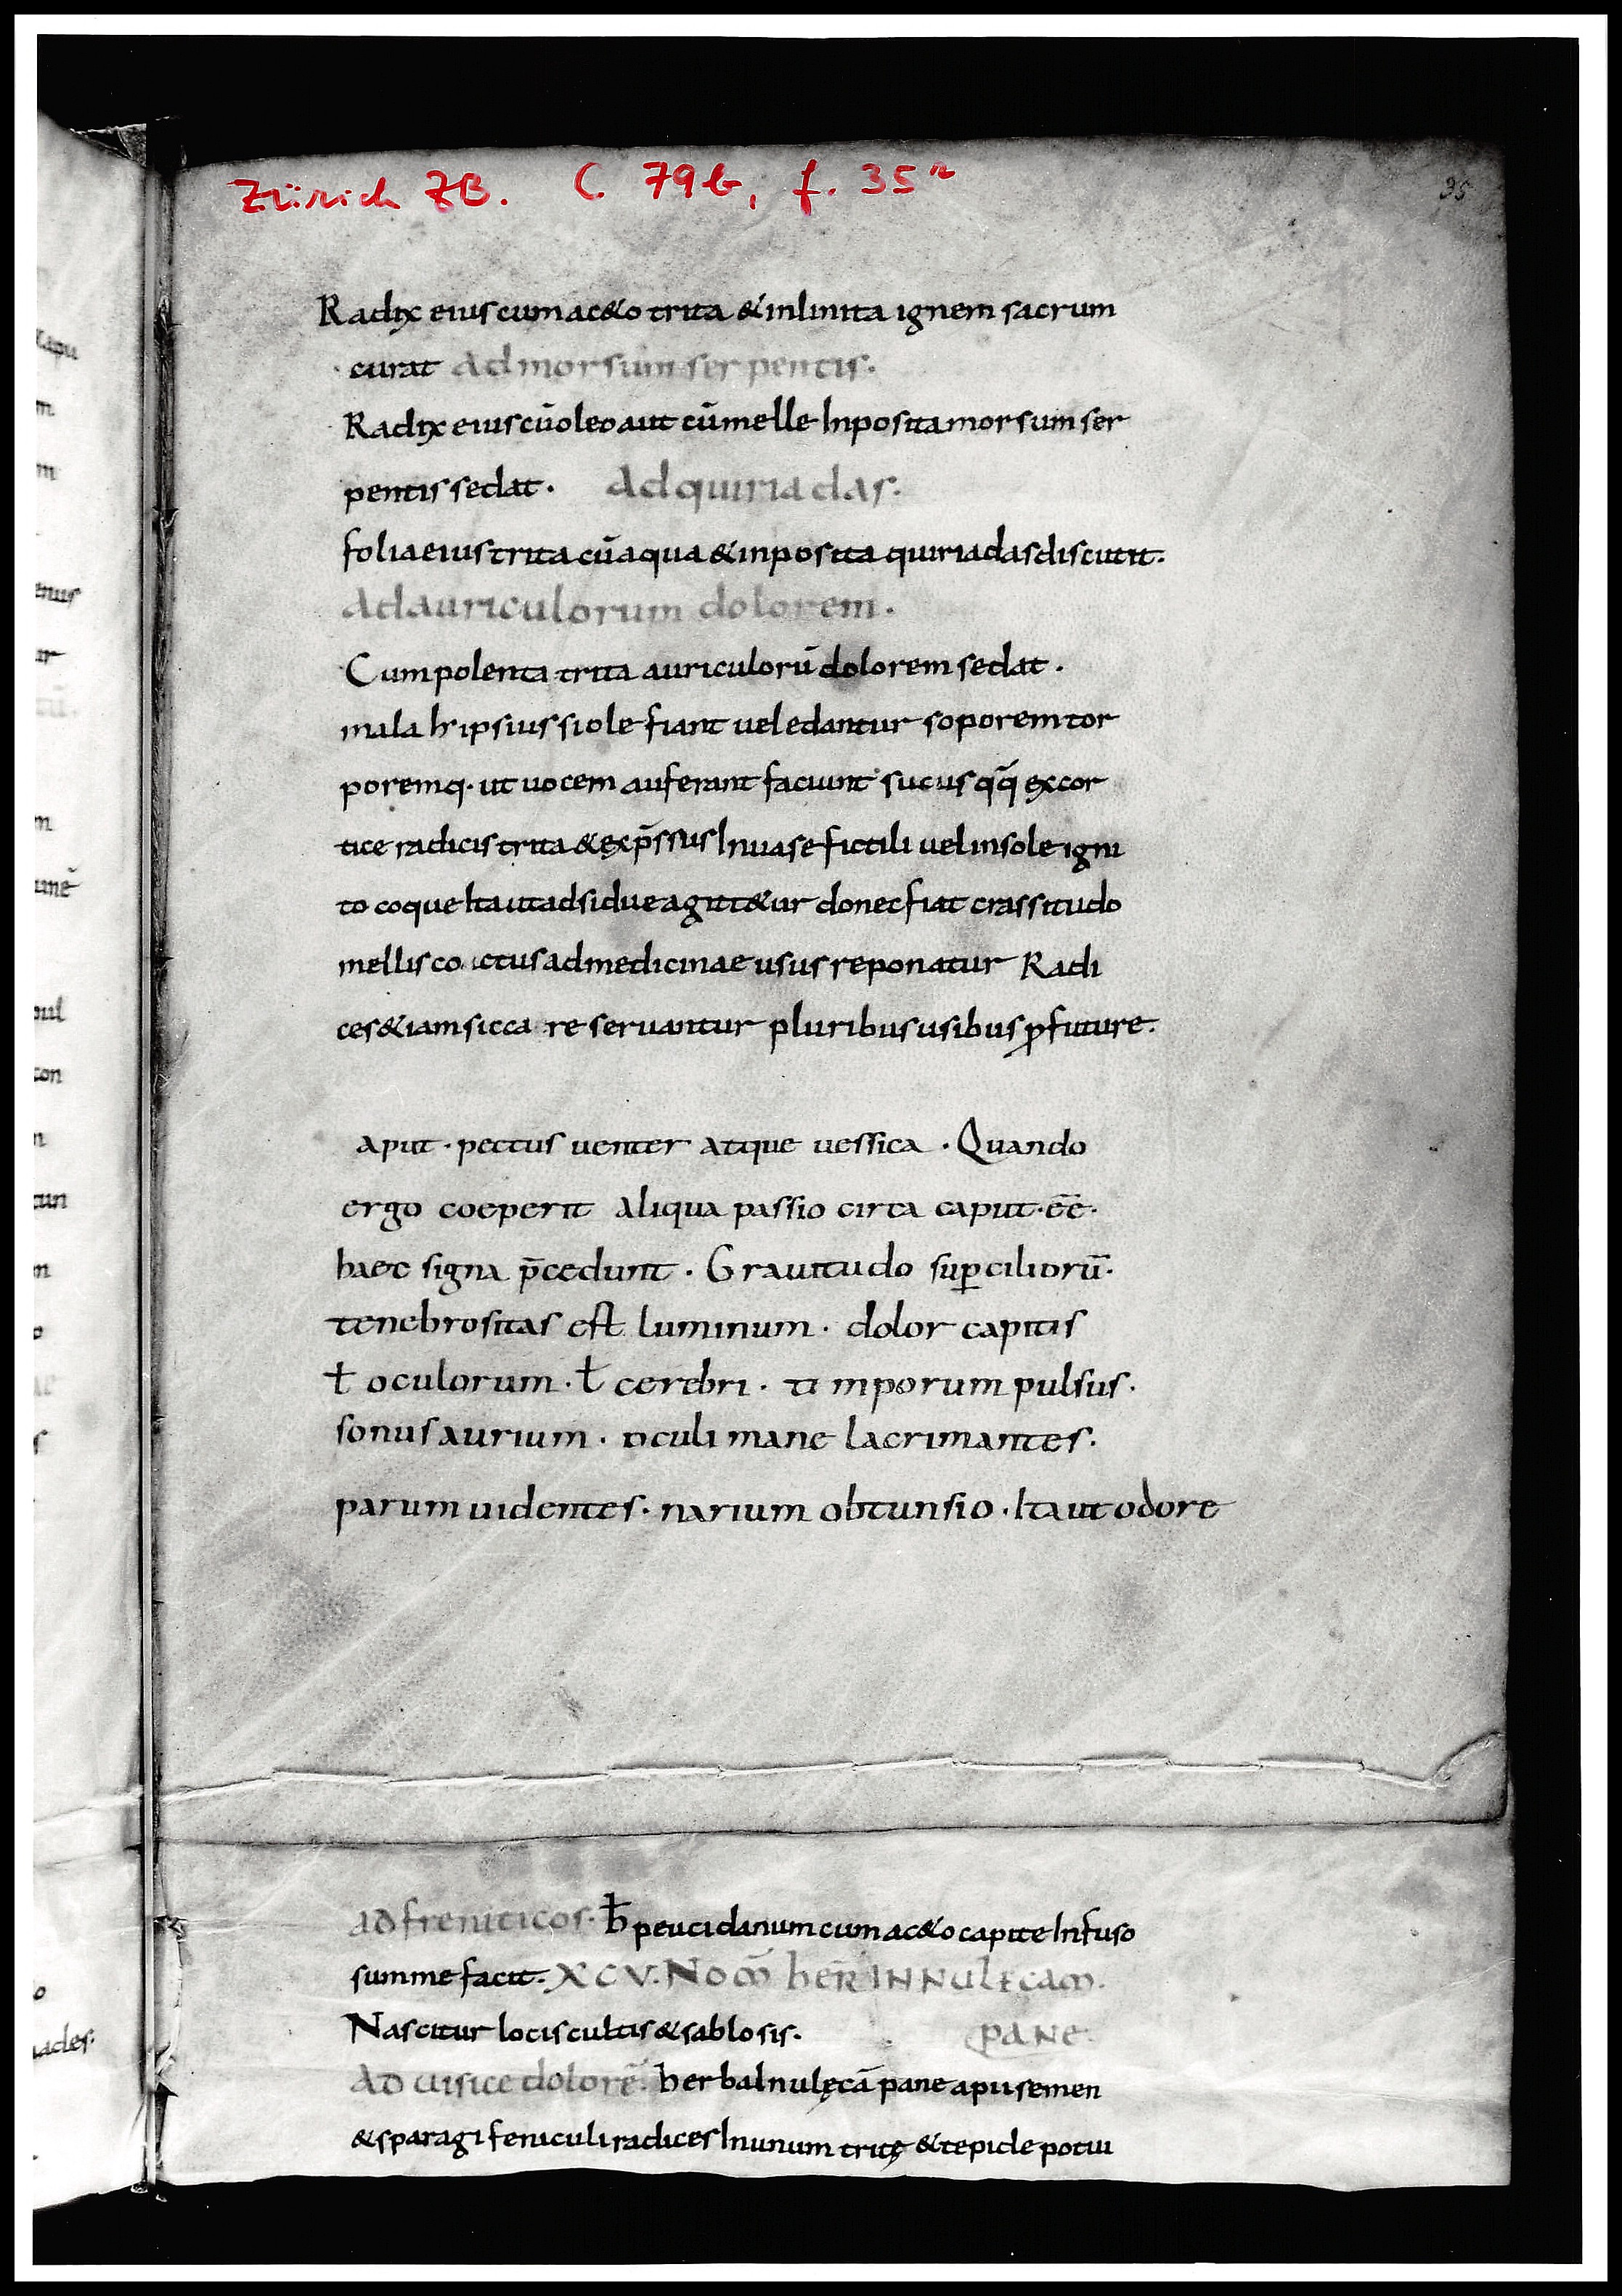 Zürich ZB. C 79b, f. 35r
35
Radix eius cum ac&o trita & inlinita ignem sacrum
curat Ad morsum serpentis.
Radix eius cū oleo aut cū melle Inposita morsum ser
pentis sedat. Ad quiriadas.
folia eius trita cū aqua & inposita quiriadas discutit.
Ad auriculorum dolorem.
Cum polenta trita auriculorū dolorem sedat.
mala ħ ipsius si ole fiant vel edantur soporem tor
poremq· ut uocem auferant faciunt sucus qq̄ ex cor
tice radicis trita & exp̄ssus In uase fictili uel in sole igni
to coque Ita ut adsidue agitetur donec fiat crassitudo
mellis co ctus ad medicinae usus reponatur Radi
ces &iam sicca reseruantur pluribus usibus ꝓfuture.
aput · pectus uenter atque uessica · Quando
ergo coeperit aliqua passio circa caput · ēē ·
haec signa p̄cedunt · Grauitudo suꝑciliorū ·
tenebrositas est luminum · dolor capitis
ł oculorum · ł cerebri · ti mporum pulsus ·
sonus aurium · oculi mane lacrimantes ·
parum uidentes · narium obtunsio · Ita ut odore
ad freniticos · ħ peucidanum cum ac&o capite Infuso
summe facit. XCV. Nom̄ her̄ INNulęcam̄.
Nascitur locis cultis & sablosis. pane.
Ad uisice dolorē. herba Inulęcā pane apii semen
& sparagi feniculi radices In unum tritę & tepide potui